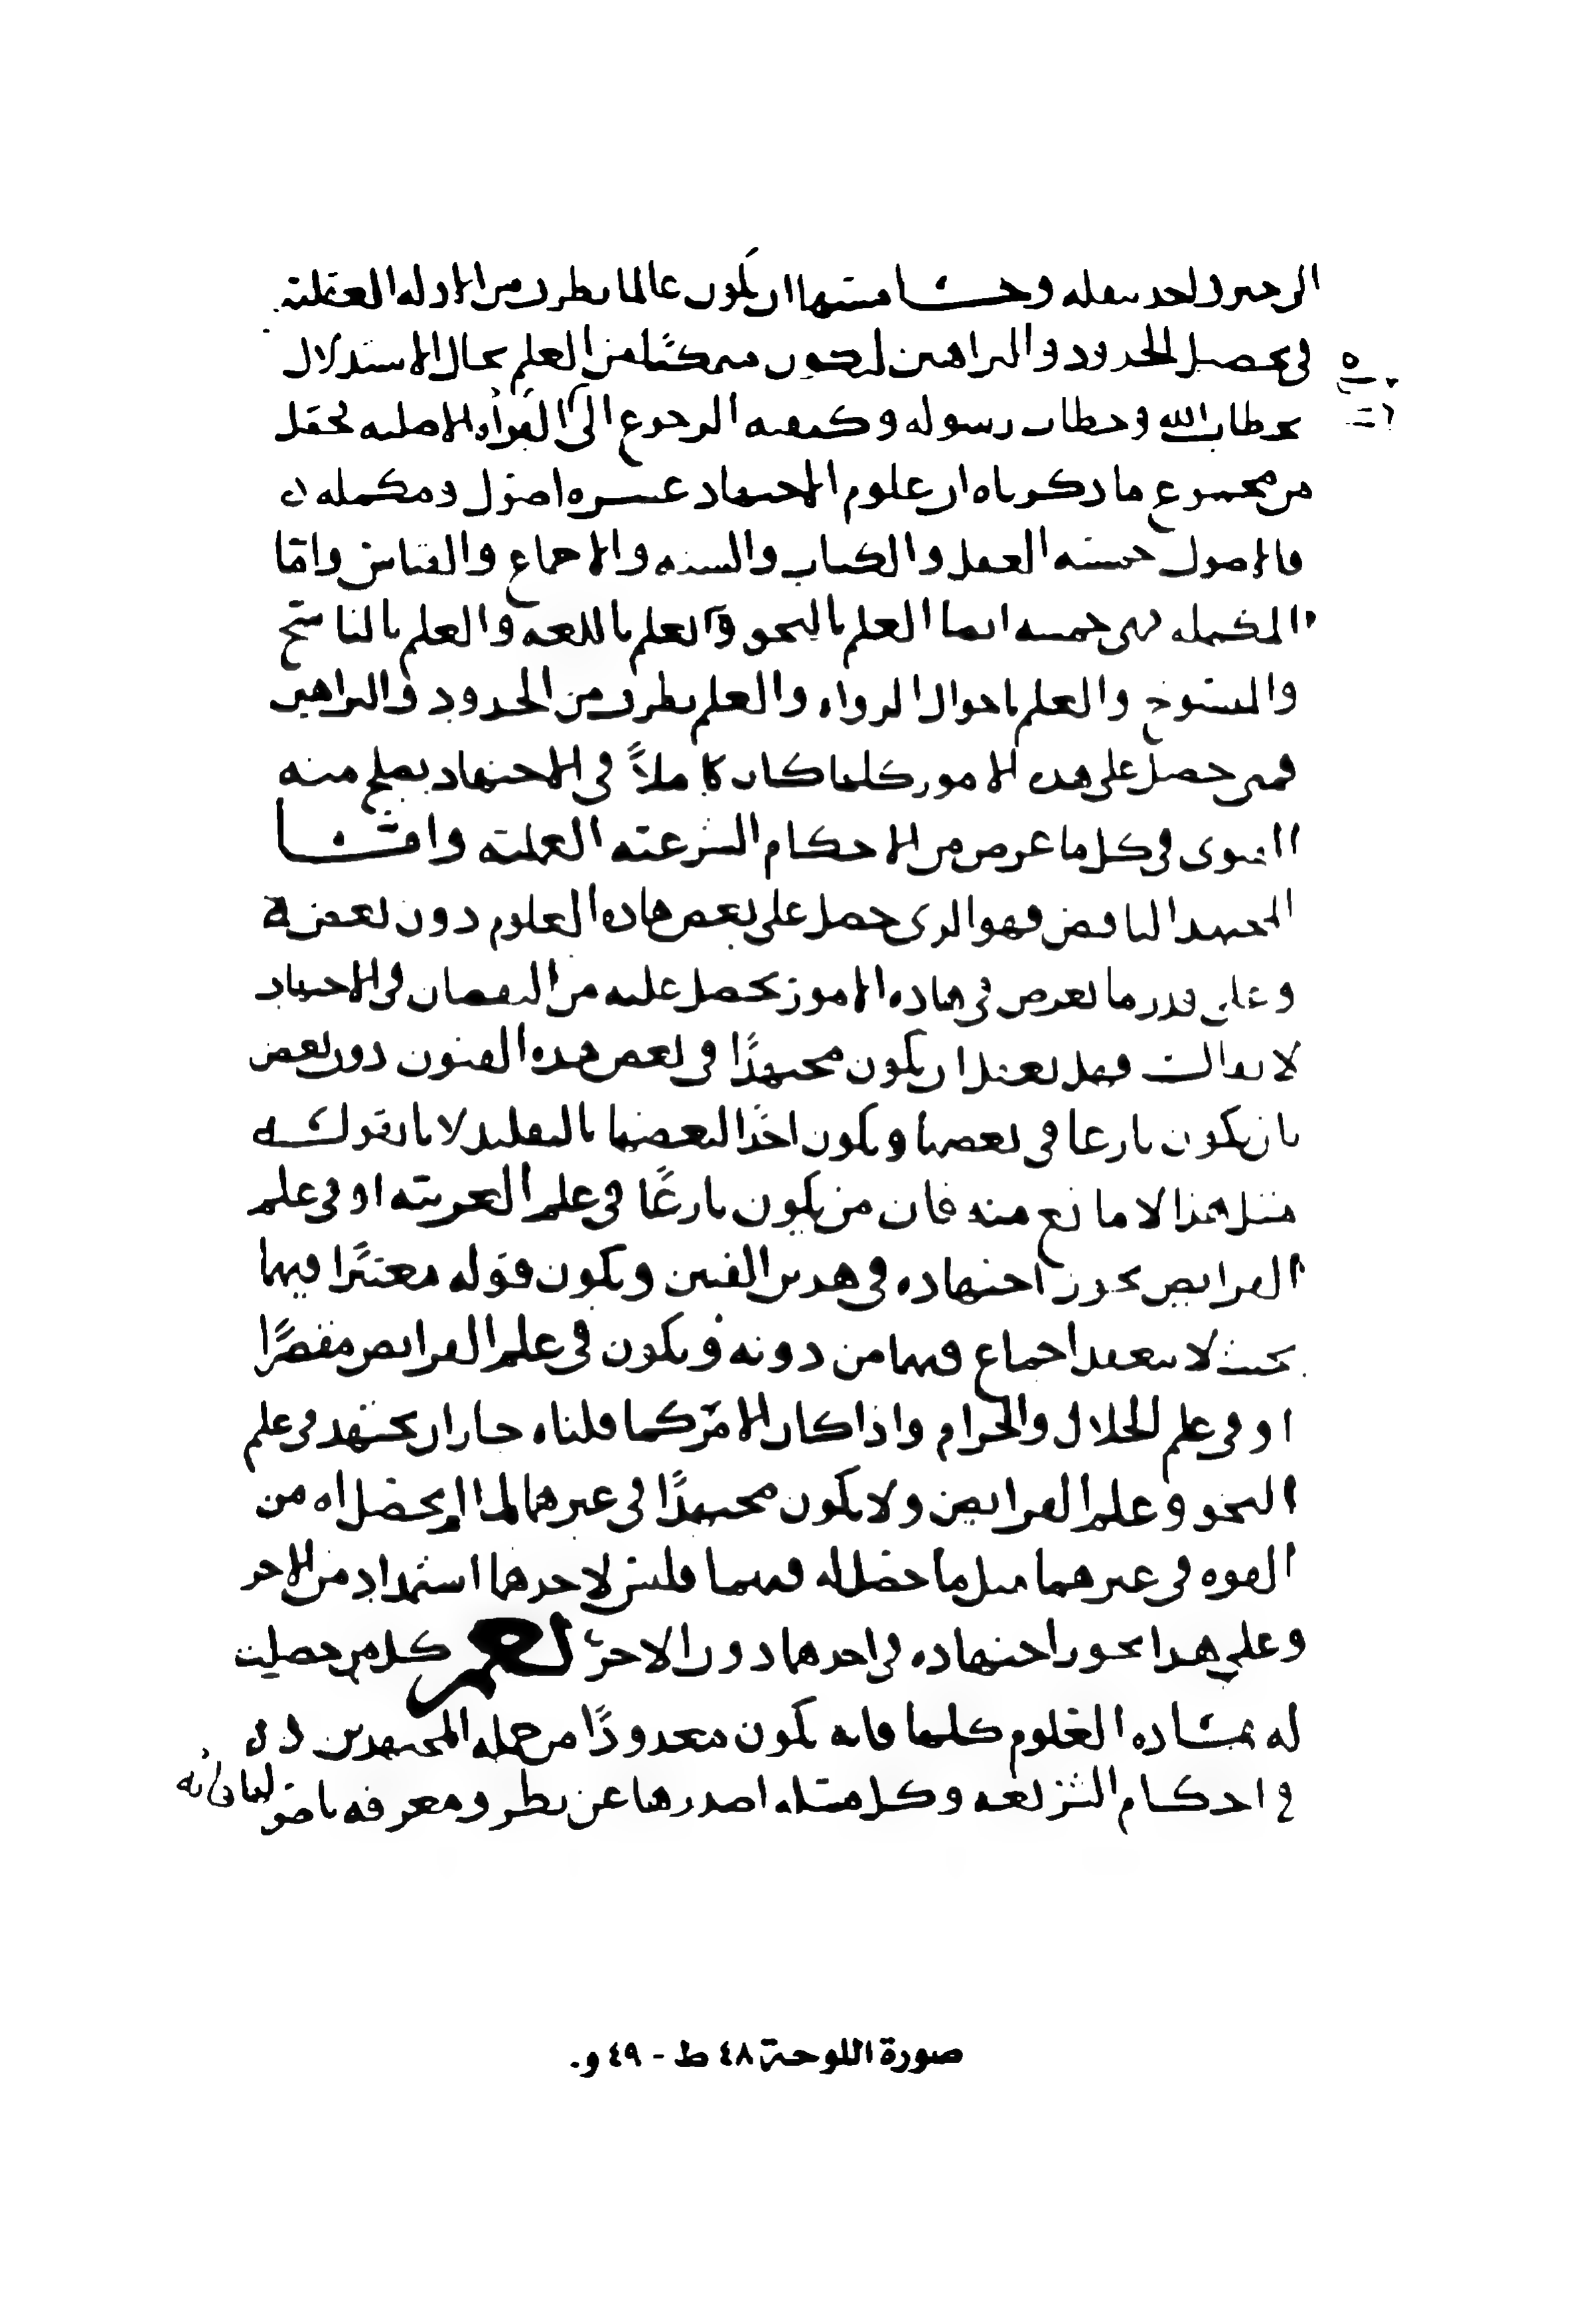 الرجيز واحد بنقله وخامسها ان يكون عالما بطرف من الادله العقلية
في تحصيل الحدود والبراهين ليكون متمكنًا من العلم بحال الاستدلال
بخطاب الله وخطاب رسوله وكيفية الرجوع الى الاصليه
من مجموع ما ذكرناه ان علوم الاجتهاد عشره اصول ومكمله
فالاصول خمسة العقل والكتاب والسنه والاجماع والقياس واما
المكمله فهي خمسه ايضا العلم بالنحو والعلم باللغه والعلم بالناسخ
والمنسوخ والعلم باحوال الرواه والعلم بطرف من الحدود والبراهين
فمتى حصل على هذه الامور كلها كان كاملاً في الاجتهاد يصلح منه
الفتوى في كل ما عرض من الاحكام الشرعية العملية وامّا
المجتهد الناقص فهو الذي حصل على بعض هاذه العلوم دون بعض
وعلى قدر ما يعرض في هاذه الامور يحصل عليه من النقصان في الاجتهاد
لا يقال فهل يعقل ان يكون مجتهدًا في بعض هذه الفنون دون بعض
بان يكون بارعا في بعضها ويكون اخذا لبعضها بالتقليد لانا نقول
مثل هذا لا مانع منه فان من يكون بارعًا في علم العربية او في علم
الفرايض يجوز اجتهاده في هذين الفنين ويكون قوله معتبرًا فيهما
بحيث لا ينعقد اجماع فيهما من دونه ويكون في علم الفرايض مقصرًا
او في علم الحلال والحرام واذا كان الامر كما قلناه جاز ان يجتهد في علم
النحو وعلم الفرايض ولا يكون مجتهدًا في غيرهما لما لم يحصل له من
القوه في غيرهما مثل ما حصل له فيهما فليس لاحدهما استمداد من الاخر
وعلى هذا يجوز اجتهاده في احدهما دون الاخر نعم كل من حصلت
له هاذه العلوم كلها فانه يكون معدودًا من جمله المجتهدين
في احكام الشريعه وكل مسله اصدرها عن نظر ومعرفه باصولها فانه
صورة اللوحة ٤٨ ط - ٤٩ و.